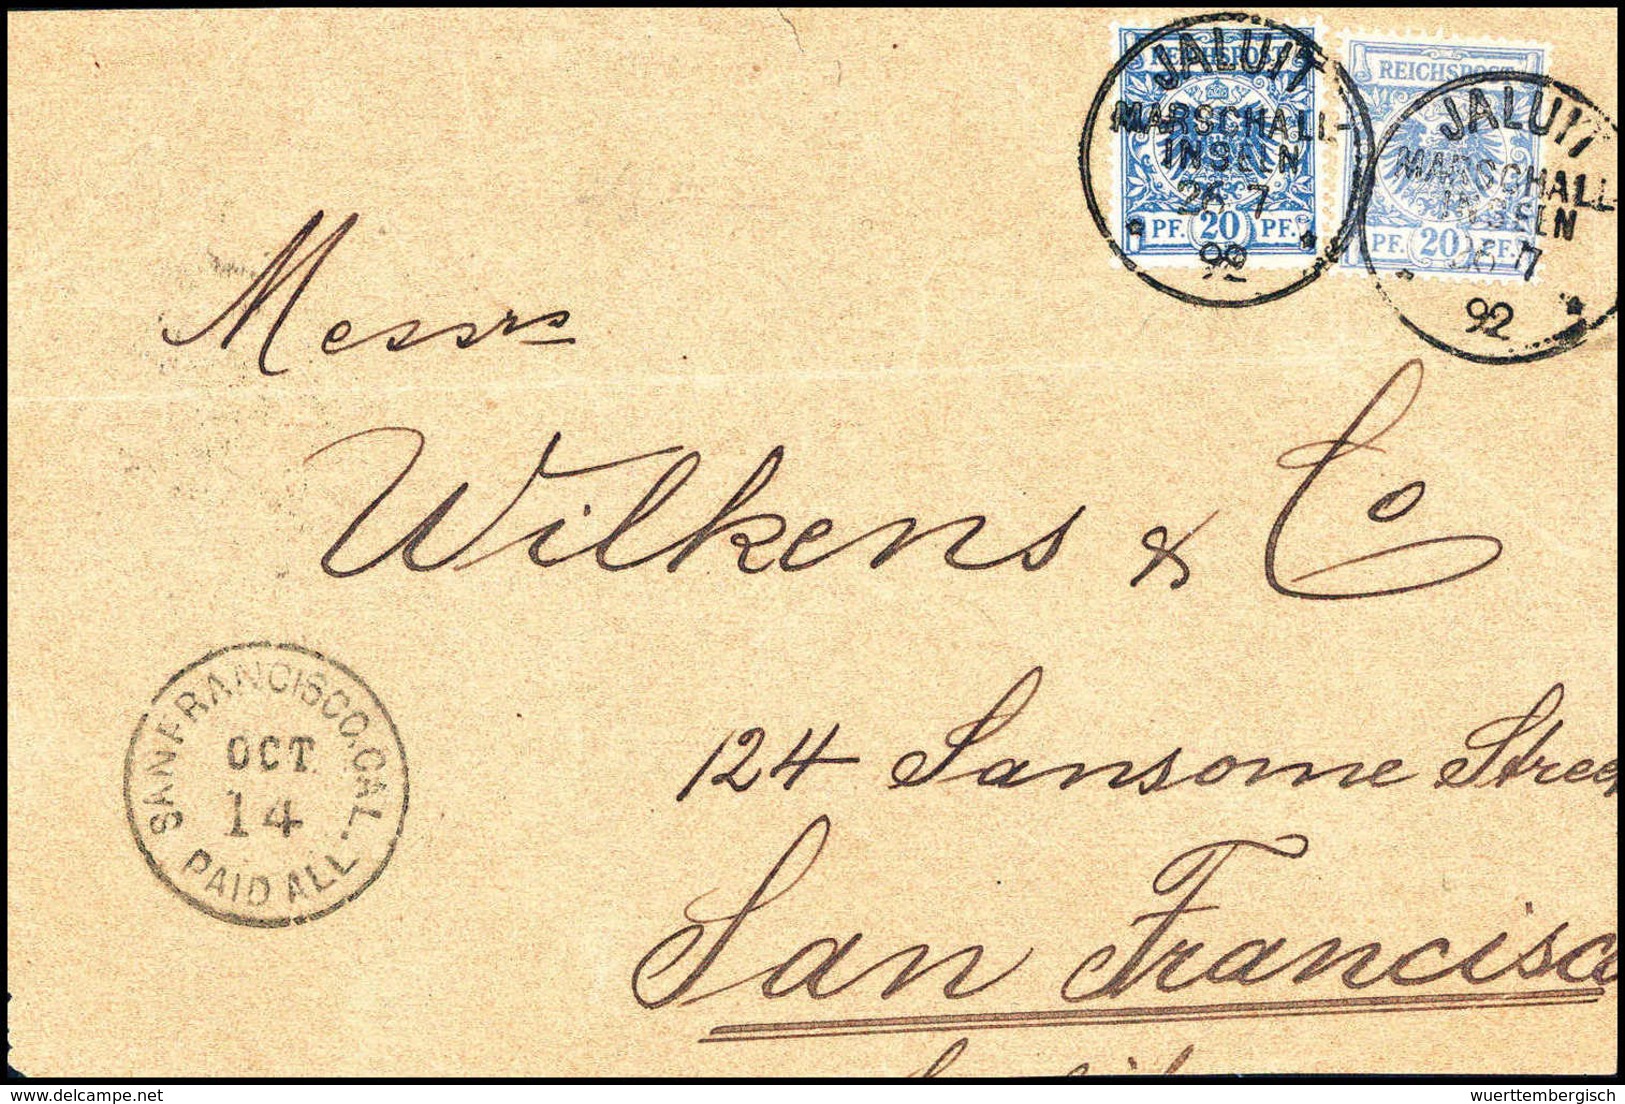 REICHSPOST
PF. 20 PF.
JALUIT
MARSCHALL-
INSELN
26 7
92
REICHSPOST
PF. 20 PF.
JALUIT
MARSCHALL-
INSELN
26 7
92
Messrs
Wilkens & Co
124 Sansome Stree
San Francisco
SAN FRANCISCO, CAL.
OCT
14
PAID ALL.
wuerttembergisch